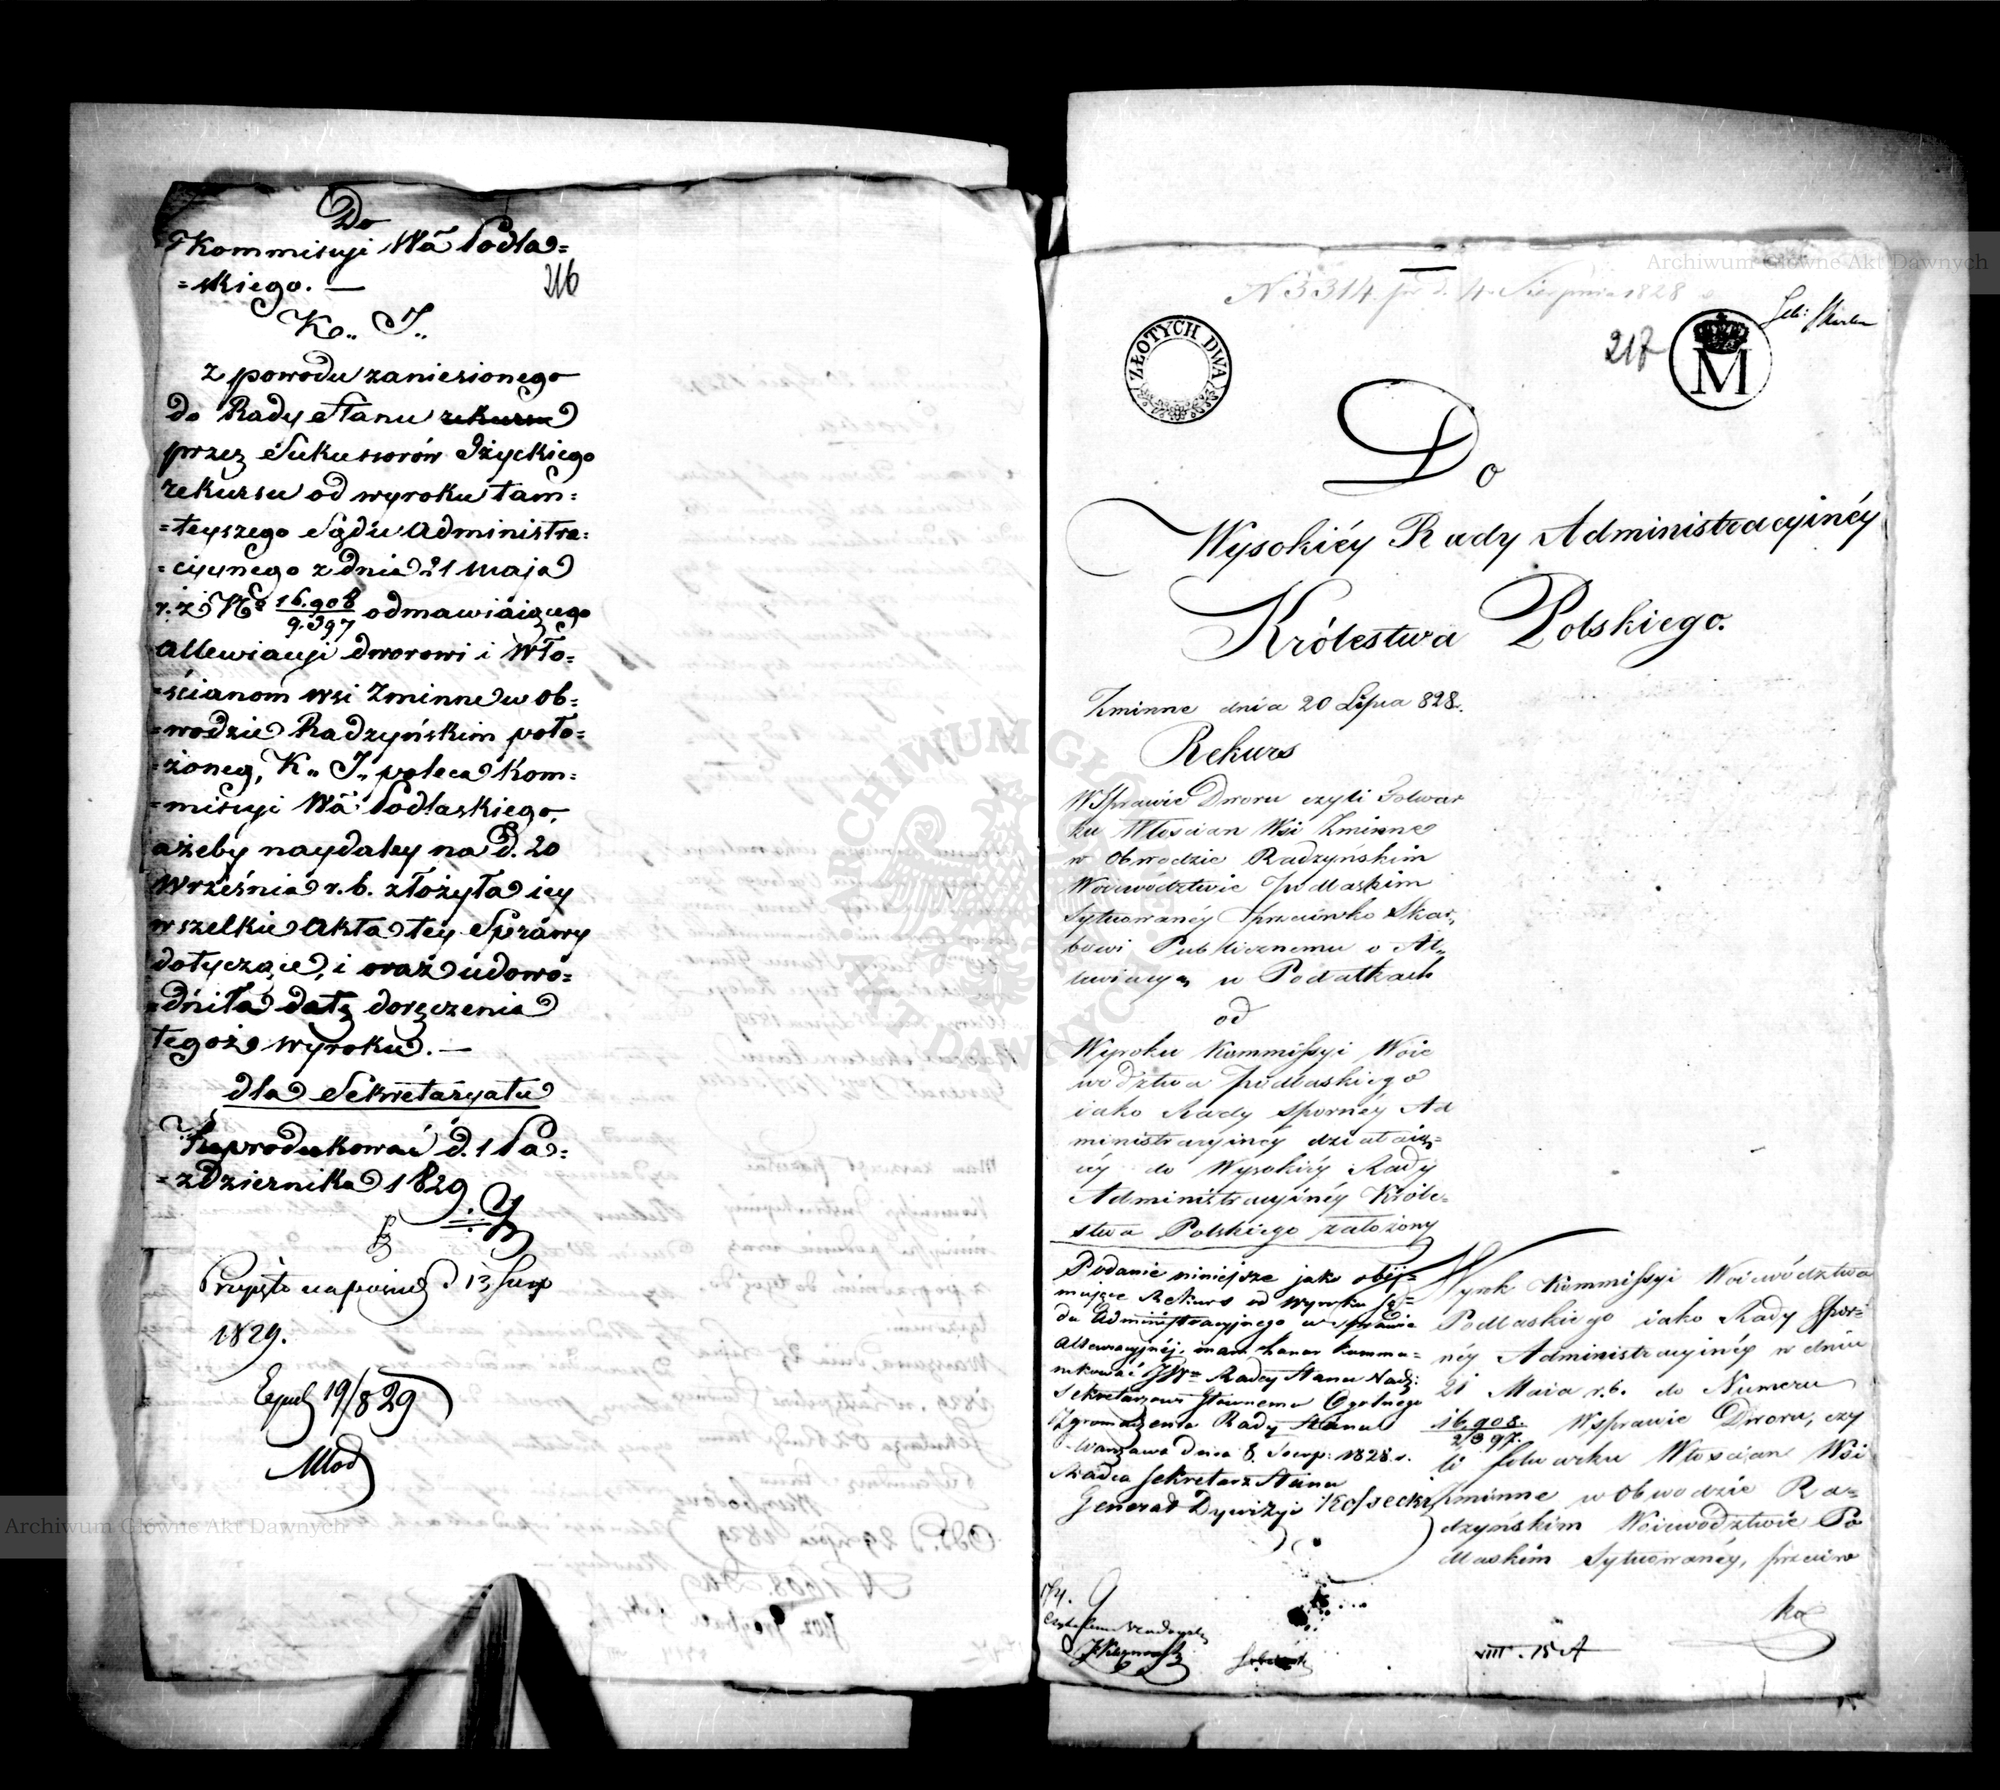 Do
Kommissyi Wa Podla=
=skiego. —
216
K„ I„
z powodu zaniesionego
do Rady Stanu rekursu
przez Sukcessorów Iżyckiego
rekursu od wyroku tam=
=teyszego Sądu Administra=
=cyinego z dnia 21 Maja
r. z. No 16.908/9.397 odmawiaiącego
allewiacyi dworowi i Wło=
=ścianom wsi Zminne w Ob=
=wodzie Radzyńskim poło=
=żoney, K„ I„ poleca Kom=
=missyi Wa Podlaskiego,
ażeby naydaley na d. 20
Września r. b. złożyła iey
wszelkie Akta tey Sprawy
dotyczące, i oraz udowo=
=dniła datę doręczenia
tegoż wyroku. —
dla Sekretaryatu
Reprodukować d. 1 Pa=
=zdziernika 1829
Przyięto na posied. d 13 Sierp
1829.
Exped 19/8 29
Młod
Archiwum Główne Akt Dawnych
N 3314. pr d. 4. Sierpnia 1828
ZŁOTYCH DWA
217
M
Do
Wysokiéy Rady Administracyinéy
Królestwa Polskiego.
Zminne dnia 20 Lipca 828.
Rekurs
W Sprawie Dworu czyli Folwar
ku Włoscian Wsi Zminne
w Obwodzie Radzyńskim
Woiewództwie Podlaskim
sytuowanéy przeciwko Skar„
bowi Publicznemu o Al„
lewiacyą w Podatkach
od
Wyroku Kommissyi Woie
wództwa Podlaskiego
iako Rady Sporney Ad
ministracyiney działaią=
céy do Wysokiéy Rady
Administracyinéy Króle=
stwa Polskiego założony
Podanie niniejsze jako obij=
mujące Rekurs od Wyroku Są=
du Administracyjnego w sprawie
Allewiacyjnéj, mam honor kommu=
nikować JWu Radcy Stanu Nadz:
Sekretarzowi Głownemu Ogolnego
Zgromadzenia Rady Stanu
Warszawa dnia 8 Sierp: 1828. r.
Radca Sekretarz Stanu
Generał Dywizyi Kossecki
Wyrok Kommissyi Woiewództwa
Podlaskiego iako Rady Spor=
néy Administracyinéy w dniu
21 Maia r. b. do Numeru
16,908./2397. W sprawie Dworu, czy
li folwarku Włoscian Wsi
Zminne w Obwodzie Ra=
dzyńskim Woiewództwie Po
dlaskim sytuowanéy, przeciw
ko
VIII. 15 A
ARCHIWUM GŁÓWNE AKT DAWNYCH
Archiwum Główne Akt Dawnych